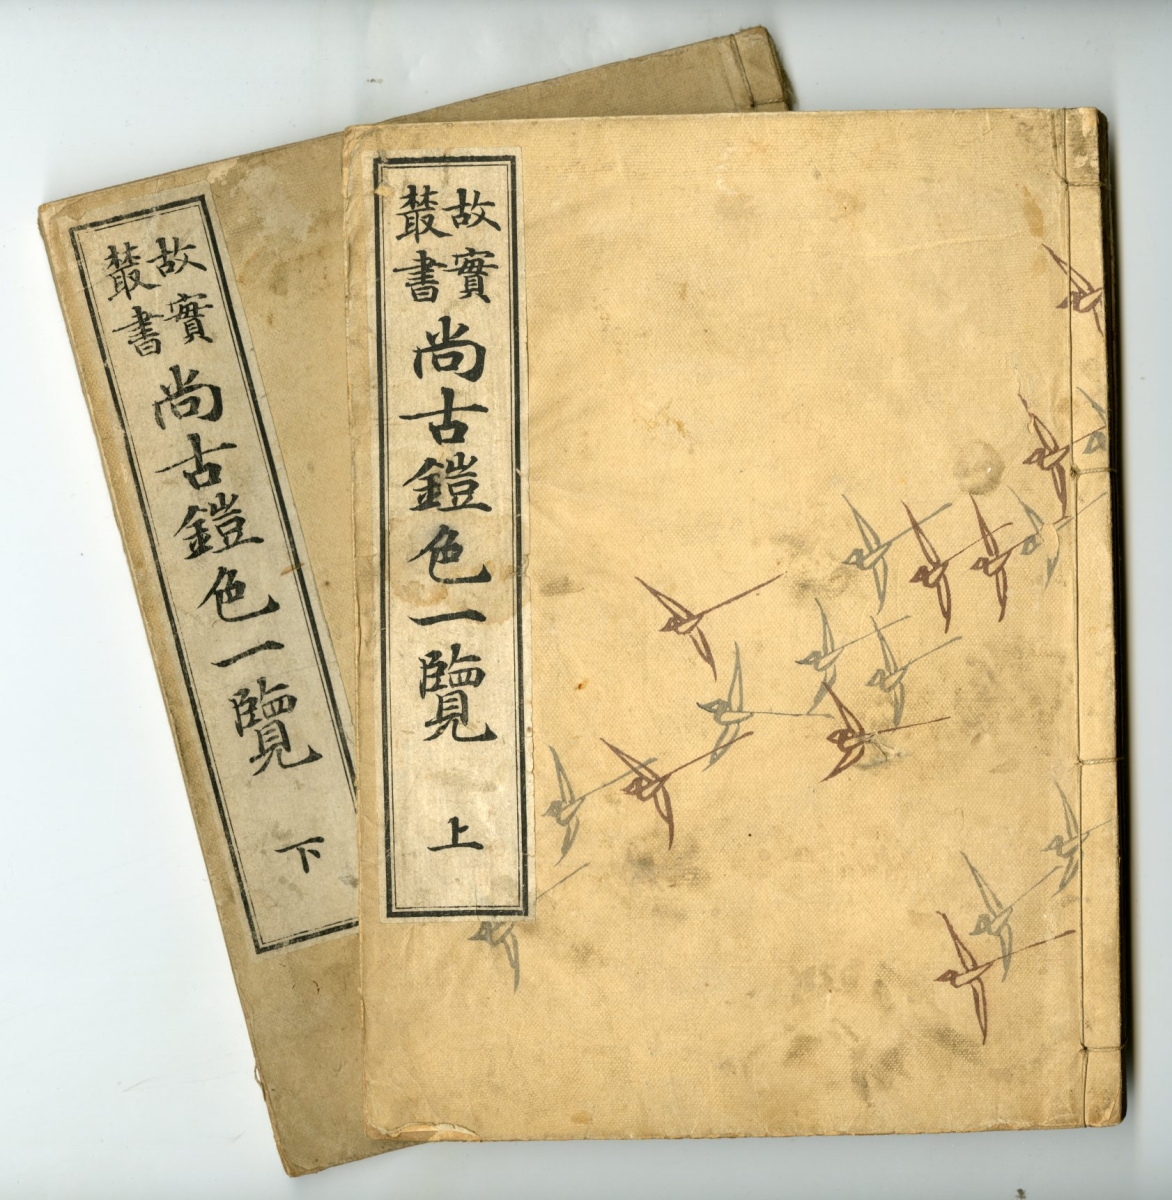 故實
叢書
尚古鎧色一覽
上
故實
叢書
尚古鎧色一覽
下